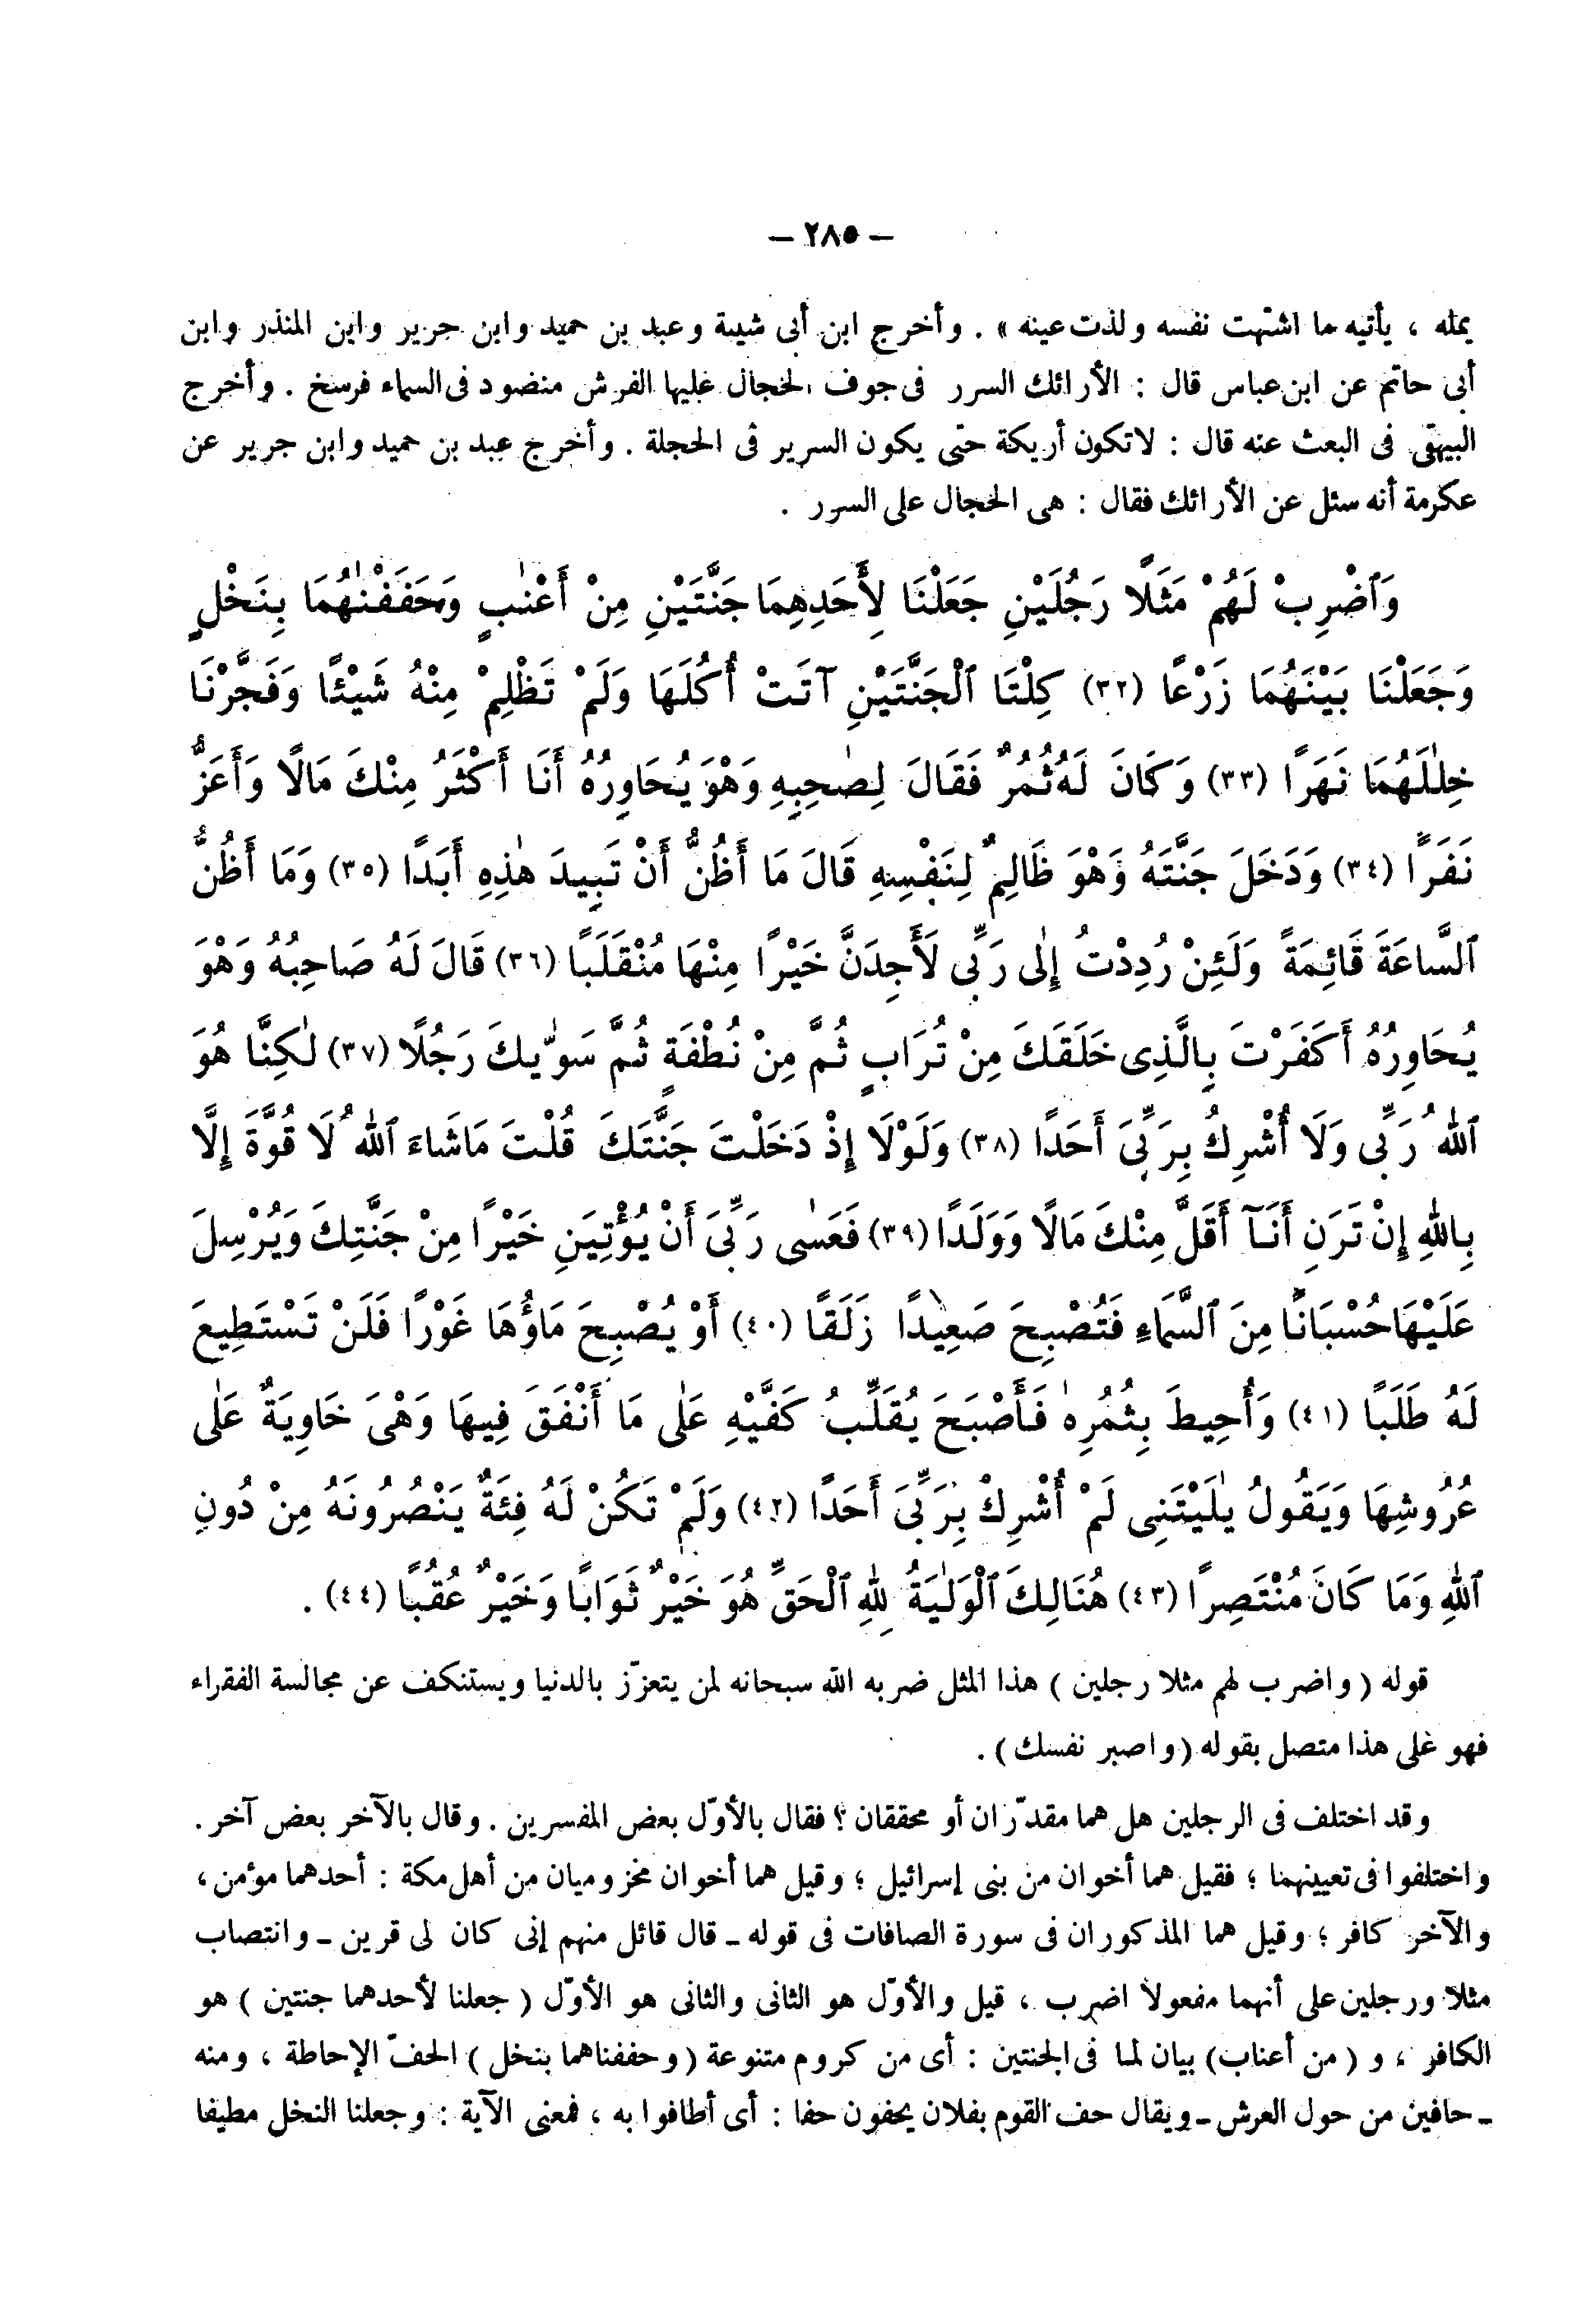 — ٢٨٥ —
يمله ، يأتيه ما اشتهت نفسه ولذت عينه » . وأخرج ابن أبى شيبة وعبد بن حميد وابن جرير وابن المنذر وابن
أبى حاتم عن ابن عباس قال : الأرائك السرر فى جوف الحجال عليها الفرش منضود فى السماء فرسخ . وأخرج
البيهقى فى البعث عنه قال : لا تكون أريكة حتى يكون السرير فى الحجلة . وأخرج عبد بن حميد وابن جرير عن
عكرمة أنه سئل عن الأرائك فقال : هى الحجال على السرر .
وَٱضْرِبْ لَهُمْ مَثَلًا رَجُلَيْنِ جَعَلْنَا لِأَحَدِهِمَا جَنَّتَيْنِ مِنْ أَعْنٰبٍ وَحَفَفْنٰهُمَا بِنَخْلٍ
وَجَعَلْنَا بَيْنَهُمَا زَرْعًا (٣٢) كِلْتَا ٱلْجَنَّتَيْنِ آتَتْ أُكُلَهَا وَلَمْ تَظْلِمْ مِنْهُ شَيْئًا وَفَجَّرْنَا
خِلٰلَهُمَا نَهَرًا (٣٣) وَكَانَ لَهُ ثُمُرٌ فَقَالَ لِصٰحِبِهِ وَهْوَ يُحَاوِرُهُ أَنَا أَكْثَرُ مِنْكَ مَالًا وَأَعَزُّ
نَفَرًا (٣٤) وَدَخَلَ جَنَّتَهُ وَهْوَ ظَالِمٌ لِنَفْسِهِ قَالَ مَا أَظُنُّ أَنْ تَبِيدَ هٰذِهِ أَبَدًا (٣٥) وَمَا أَظُنُّ
ٱلسَّاعَةَ قَائِمَةً وَلَئِنْ رُدِدْتُ إِلٰى رَبِّى لَأَجِدَنَّ خَيْرًا مِنْهَا مُنْقَلَبًا (٣٦) قَالَ لَهُ صَاحِبُهُ وَهْوَ
يُحَاوِرُهُ أَكَفَرْتَ بِالَّذِى خَلَقَكَ مِنْ تُرَابٍ ثُمَّ مِنْ نُطْفَةٍ ثُمَّ سَوّٰيكَ رَجُلًا (٣٧) لٰكِنَّا هُوَ
ٱللهُ رَبِّى وَلَا أُشْرِكُ بِرَبِّىَ أَحَدًا (٣٨) وَلَوْلَا إِذْ دَخَلْتَ جَنَّتَكَ قُلْتَ مَاشَاءَ ٱللهُ لَا قُوَّةَ إِلَّا
بِاللهِ إِنْ تَرَنِ أَنَآ أَقَلَّ مِنْكَ مَالًا وَوَلَدًا (٣٩) فَعَسٰى رَبِّىَ أَنْ يُؤْتِيَنِ خَيْرًا مِنْ جَنَّتِكَ وَيُرْسِلَ
عَلَيْهَا حُسْبَانًا مِنَ ٱلسَّمَاءِ فَتُصْبِحَ صَعِيدًا زَلَقًا (٤٠) أَوْ يُصْبِحَ مَاؤُهَا غَوْرًا فَلَنْ تَسْتَطِيعَ
لَهُ طَلَبًا (٤١) وَأُحِيطَ بِثُمُرِهِ فَأَصْبَحَ يُقَلِّبُ كَفَّيْهِ عَلٰى مَا أَنْفَقَ فِيهَا وَهْىَ خَاوِيَةٌ عَلٰى
عُرُوشِهَا وَيَقُولُ يٰلَيْتَنِى لَمْ أُشْرِكْ بِرَبِّىَ أَحَدًا (٤٢) وَلَمْ تَكُنْ لَهُ فِئَةٌ يَنْصُرُونَهُ مِنْ دُونِ
ٱللهِ وَمَا كَانَ مُنْتَصِرًا (٤٣) هُنَالِكَ ٱلْوَلٰيَةُ لِلهِ ٱلْحَقِّ هُوَ خَيْرٌ ثَوَابًا وَخَيْرٌ عُقُبًا (٤٤) .
قوله ( واضرب لهم مثلا رجلين ) هذا المثل ضربه الله سبحانه لمن يتعزّز بالدنيا ويستنكف عن مجالسة الفقراء
فهو على هذا متصل بقوله ( واصبر نفسك ) .
وقد اختلف فى الرجلين هل هما مقدّران أو محققان ؟ فقال بالأوّل بعض المفسرين . وقال بالآخر بعض آخر .
واختلفوا فى تعيينهما ؛ فقيل هما أخوان من بنى إسرائيل ؛ وقيل هما أخوان مخزوميان من أهل مكة : أحدهما مؤمن ،
والآخر كافر ؛ وقيل هما المذكوران فى سورة الصافات فى قوله - قال قائل منهم إنى كان لى قرين - وانتصاب
مثلا ورجلين على أنهما مفعولا اضرب ، قيل والأوّل هو الثانى والثانى هو الأوّل ( جعلنا لأحدهما جنتين ) هو
الكافر ، و ( من أعناب ) بيان لما فى الجنتين : أى من كروم متنوعة ( وحففناهما بنخل ) الحفّ الإحاطة ، ومنه
- حافين من حول العرش - ويقال حف القوم بفلان يحفون حفا : أى أطافوا به ، فمعنى الآية : وجعلنا النخل مطيفا